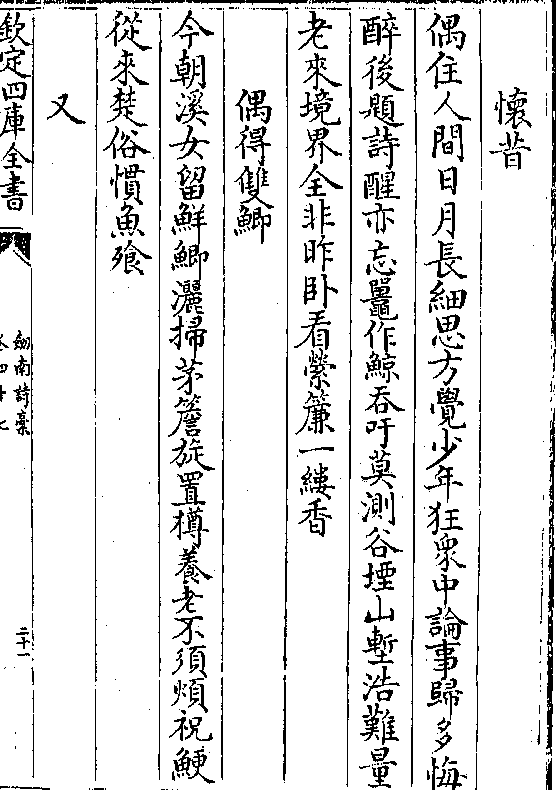 懷昔
偶住人間日月長細思方覺少年狂衆中論事歸多悔
醉後題詩醒亦忘鼉作鯨吞吁莫測谷堙山塹浩難量
老來境界全非昨卧看縈簾一縷香
偶得雙鯽
今朝溪女留鮮鯽灑掃茅簷旋置樽養老不須煩祝鯁
從來楚俗慣魚飱
又
欽定四庫全書
劍南詩藁
卷四十七
二十一